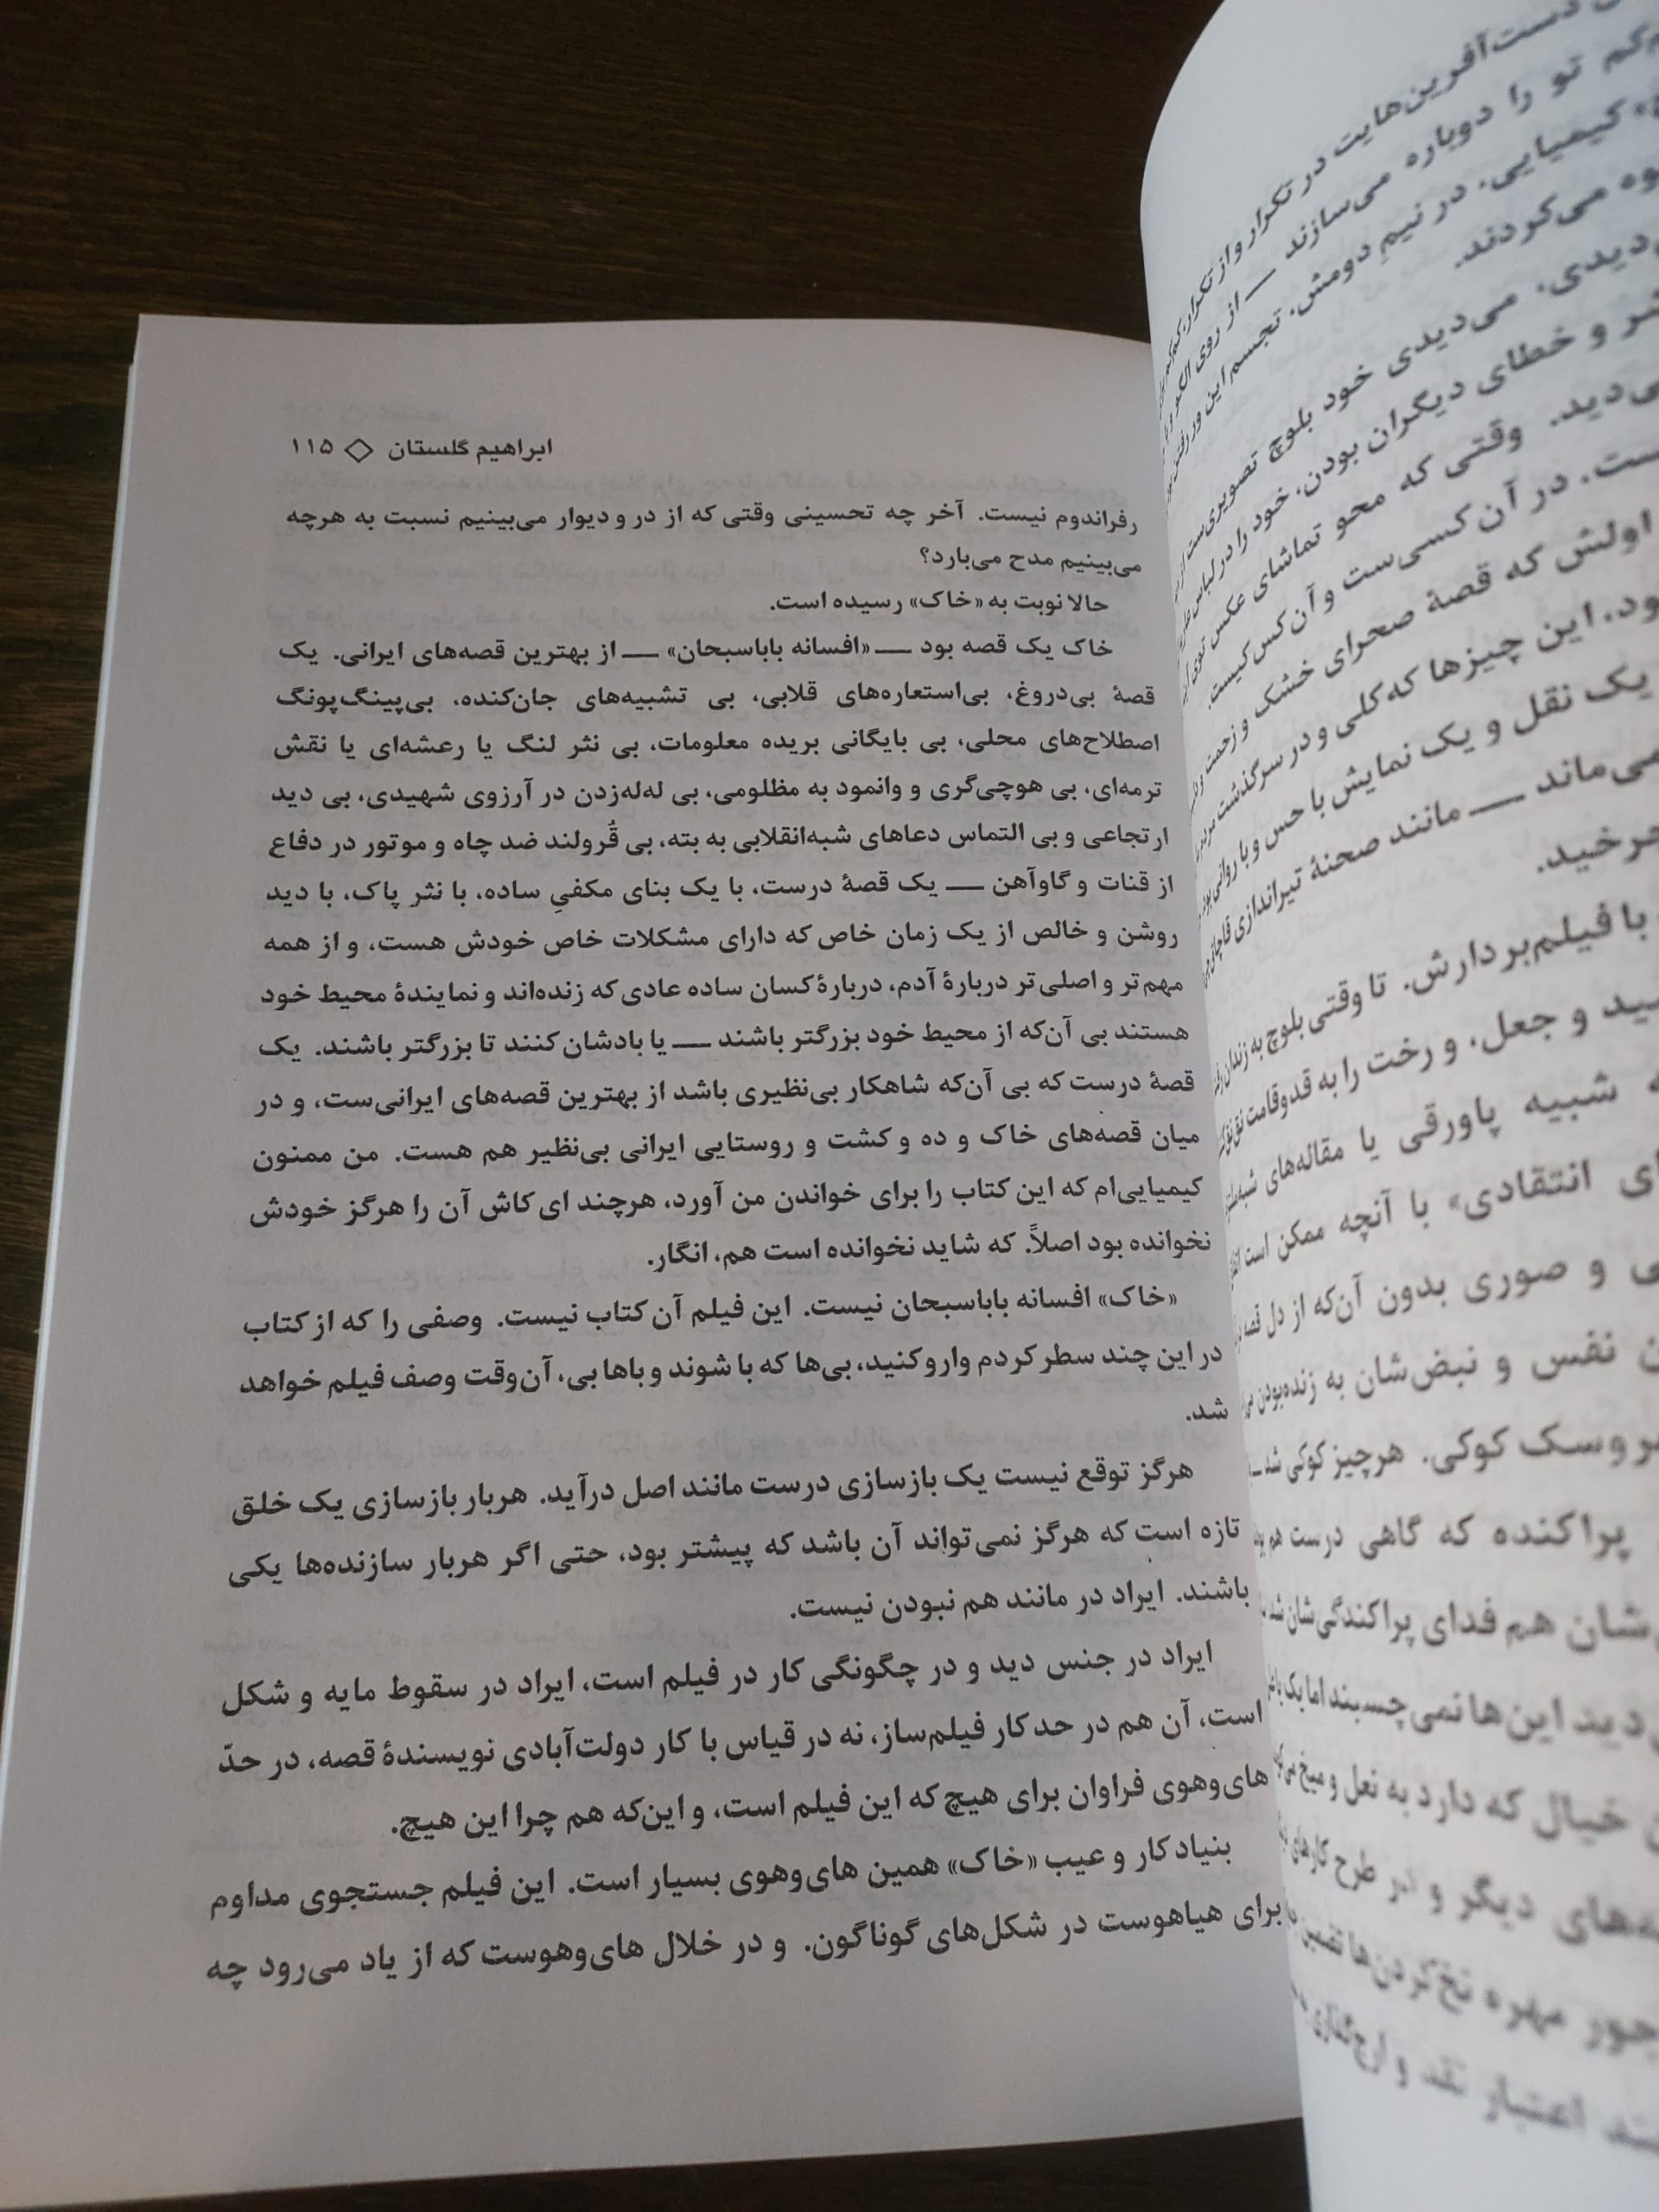 دست‌آفرین‌هایت در تکرار و از تکرار،
کم تو را دوباره می‌سازند — از روی الگو
کیمیایی. در نیمِ دومش، تجسم این ور رفتن
می‌کردند.
دیدی. می‌دیدی خود بلوچ تصویری‌ست از
و خطای دیگران بودن، خود را در لباس
می‌دید. وقتی که محو تماشای عکس توی
است. در آن کسی‌ست و آن کس کیست.
اولش که قصهٔ صحرای خشک و زحمت
این چیزها که کلی و در سرگذشت مردم
یک نقل و یک نمایش با حس و با روانی بود
می‌ماند — مانند صحنهٔ تیراندازی قاچاق
چرخید.
با فیلم‌بردارش. تا وقتی بلوچ به زندان
و جعل، و رخت را به قدوقامت
شبیه پاورقی یا مقاله‌های
انتقادی» با آنچه ممکن است
و صوری بدون آن‌که از دل قصه
نفس و نبض‌شان به زنده‌بودن
عروسک کوکی. هرچیز کوکی شد
پراکنده که گاهی درست هم
شان هم فدای پراکندگی‌شان شد
دید این‌ها نمی‌چسبند اما یک
خیال که دارد به نعل و میخ
دیگر و در طرح کارهای
جور مهره نخ‌کردن‌ها
اعتبار نقد و ارج‌گذاری
ابراهیم گلستان ◇ ۱۱۵
رفراندوم نیست. آخر چه تحسینی وقتی که از در و دیوار می‌بینیم نسبت به هرچه
می‌بینیم مدح می‌بارد؟
حالا نوبت به «خاک» رسیده است.
خاک یک قصه بود — «افسانه باباسبحان» — از بهترین قصه‌های ایرانی. یک
قصهٔ بی‌دروغ، بی‌استعاره‌های قلابی، بی تشبیه‌های جان‌کنده، بی‌پینگ‌پونگ
اصطلاح‌های محلی، بی بایگانی بریده معلومات، بی نثر لنگ یا رعشه‌ای یا نقش
ترمه‌ای، بی هوچی‌گری و وانمود به مظلومی، بی له‌له‌زدن در آرزوی شهیدی، بی دید
ارتجاعی و بی التماس دعاهای شبه‌انقلابی به بته، بی قُرولند ضد چاه و موتور در دفاع
از قنات و گاوآهن — یک قصهٔ درست، با یک بنای مکفیِ ساده، با نثر پاک، با دید
روشن و خالص از یک زمان خاص که دارای مشکلات خاص خودش هست، و از همه
مهم‌تر و اصلی‌تر دربارهٔ آدم، دربارهٔ کسان ساده عادی که زنده‌اند و نمایندهٔ محیط خود
هستند بی آن‌که از محیط خود بزرگتر باشند — یا بادشان کنند تا بزرگتر باشند. یک
قصهٔ درست که بی آن‌که شاهکار بی‌نظیری باشد از بهترین قصه‌های ایرانی‌ست، و در
میان قصه‌های خاک و ده و کشت و روستایی ایرانی بی‌نظیر هم هست. من ممنون
کیمیایی‌ام که این کتاب را برای خواندن من آورد، هرچند ای کاش آن را هرگز خودش
نخوانده بود اصلاً. که شاید نخوانده است هم، انگار.
«خاک» افسانه باباسبحان نیست. این فیلم آن کتاب نیست. وصفی را که از کتاب
در این چند سطر کردم وارو کنید، بی‌ها که با شوند و باها بی، آن‌وقت وصف فیلم خواهد
شد.
هرگز توقع نیست یک بازسازی درست مانند اصل درآید. هربار بازسازی یک خلق
تازه است که هرگز نمی‌تواند آن باشد که پیشتر بود، حتی اگر هربار سازنده‌ها یکی
باشند. ایراد در مانند هم نبودن نیست.
ایراد در جنس دید و در چگونگی کار در فیلم است، ایراد در سقوط مایه و شکل
است، آن هم در حد کار فیلم‌ساز، نه در قیاس با کار دولت‌آبادی نویسندهٔ قصه، در حدّ
های‌وهوی فراوان برای هیچ که این فیلم است، و این‌که هم چرا این هیچ.
بنیاد کار و عیب «خاک» همین های‌وهوی بسیار است. این فیلم جستجوی مداوم
برای هیاهوست در شکل‌های گوناگون. و در خلال های‌وهوست که از یاد می‌رود چه